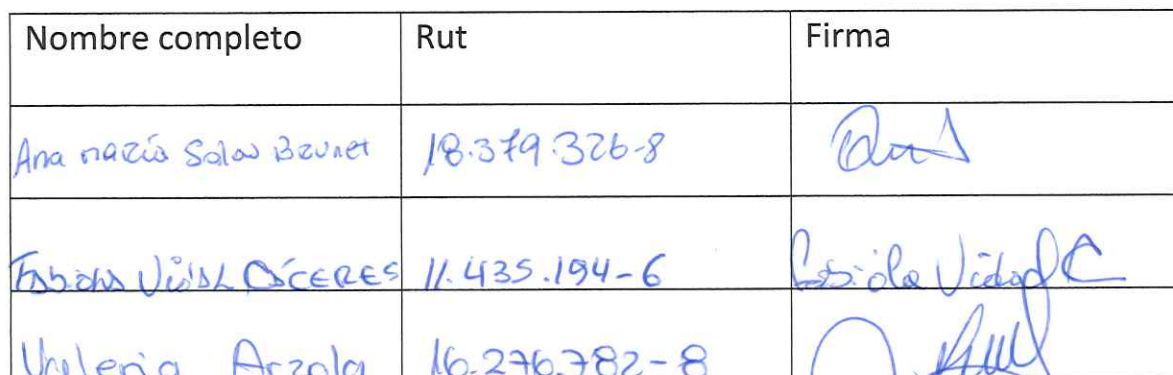 Nombre completo Rut Firma
Ana María Salas Brunet 18.379.326-8
Fabiola Vidal Cáceres 11.435.194-6 Fabiola Vidal C
Valeria Arzola 16.276.782-8